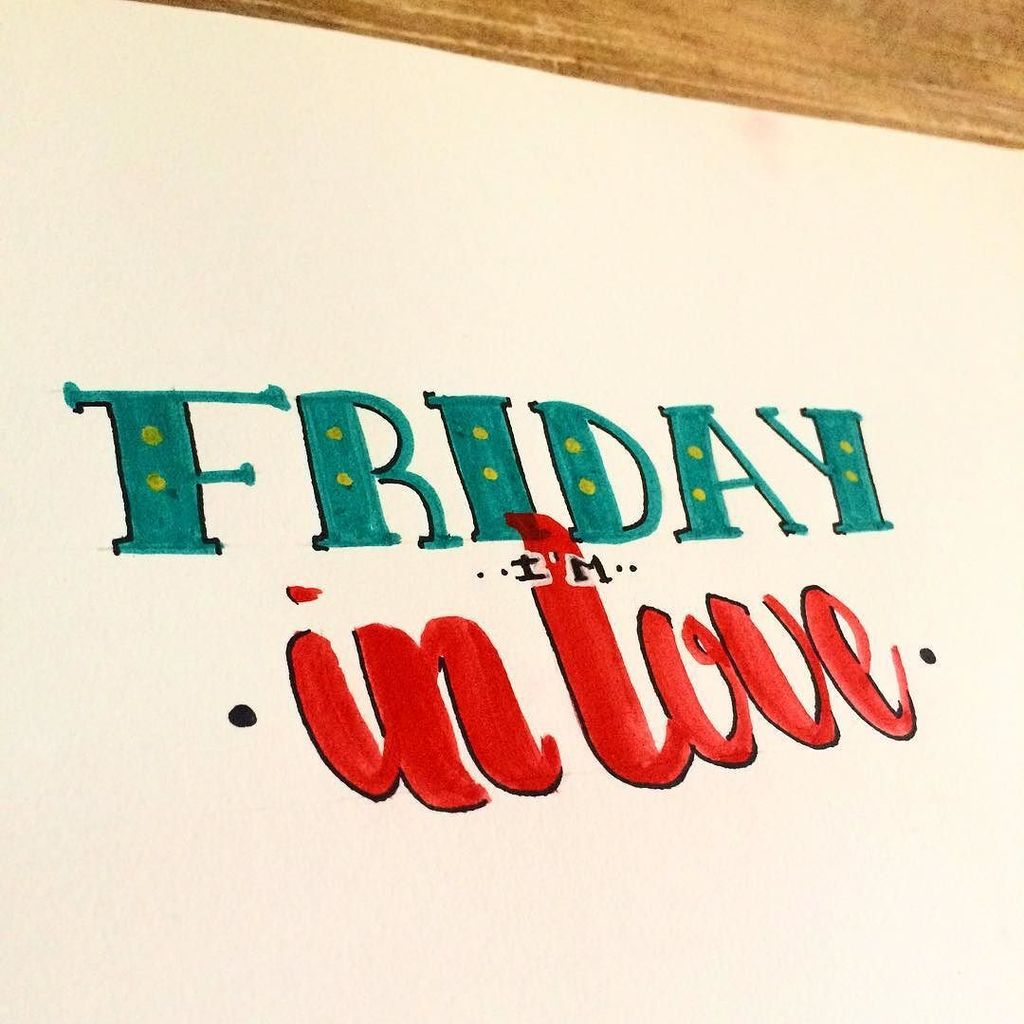 FRIDAY
..I'M..
.in love.